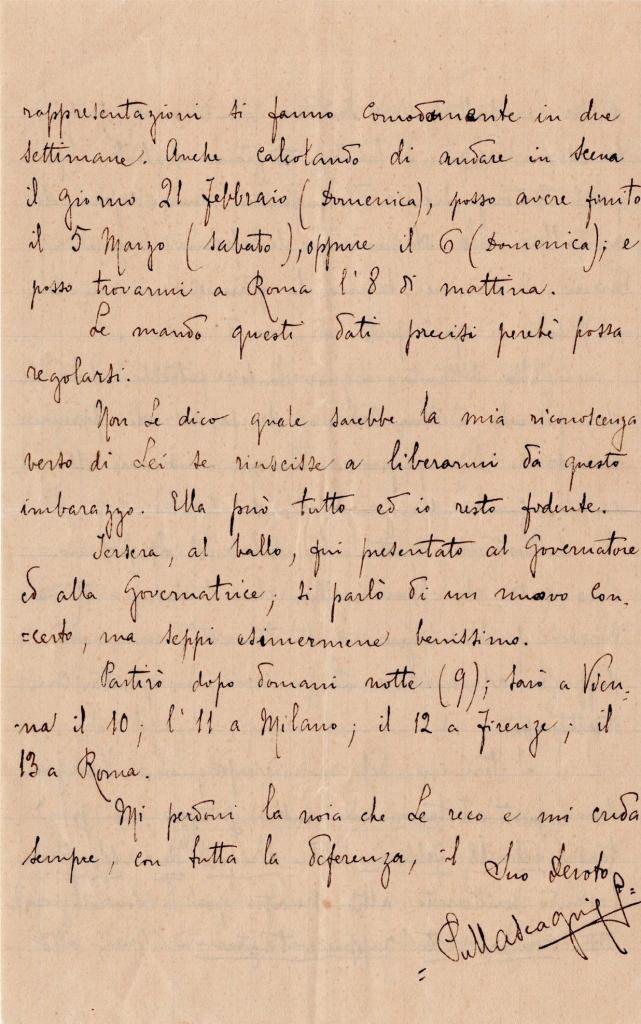 rappresentazioni si fanno comodamente in due
settimane. Anche calcolando di andare in scena
il giorno 21 Febbraio (Domenica), posso avere finito
il 5 Marzo (sabato), oppure il 6 (Domenica); e
posso trovarmi a Roma l'8 di mattina.
Le mando questi dati precisi perchè possa
regolarsi.
Non Le dico quale sarebbe la mia riconoscenza
verso di Lei se riuscisse a liberarmi da questo
imbarazzo. Ella può tutto ed io resto fidente.
Iersera, al ballo, fui presentato al Governatore
ed alla Governatrice; si parlò di un nuovo con-
=certo, ma seppi esimermene benissimo.
Partirò dopo domani notte (9); sarò a Vien-
-na il 10; l'11 a Milano; il 12 a Firenze; il
13 a Roma.
Mi perdoni la noia che Le reco e mi creda
sempre, con tutta la deferenza, il Suo Devoto
PMascagni